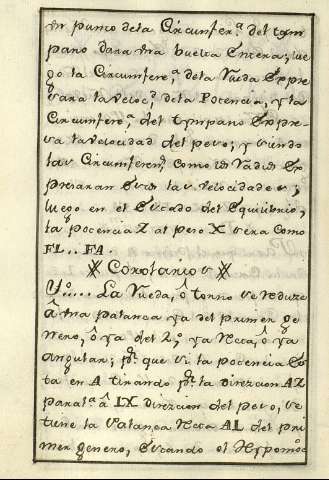 un punto de la Circunfer.ª del tym
pano dara una buelta Entera; lue
go la Circunfere.ª de la Rueda Expre
sara la veloc.ᵈ de la Potencia, y la
Circunfere.ª del tympano Expre
sa la velocidad del peso; y siendo
las Circunferen.ˢ Como los Radios Ex
presaran Estos las velocidades;
luego en el Estado del Equilibrio,
la potencia Z al peso X sera Como
FL.. FA.
Corolarios
1º.... La Rueda, ô torno se reduze
â una palanca ya del primer ge
nero, ô ya del 2º, ya Recta, ô ya
angular; p.ʳ que si la potencia Es
ta en A tirando p.ʳ la direccion AZ
paral.ª â IX direccion del peso, se
tiene la Palanca Recta AL del pri
mer genero, Estando el Hypomoc